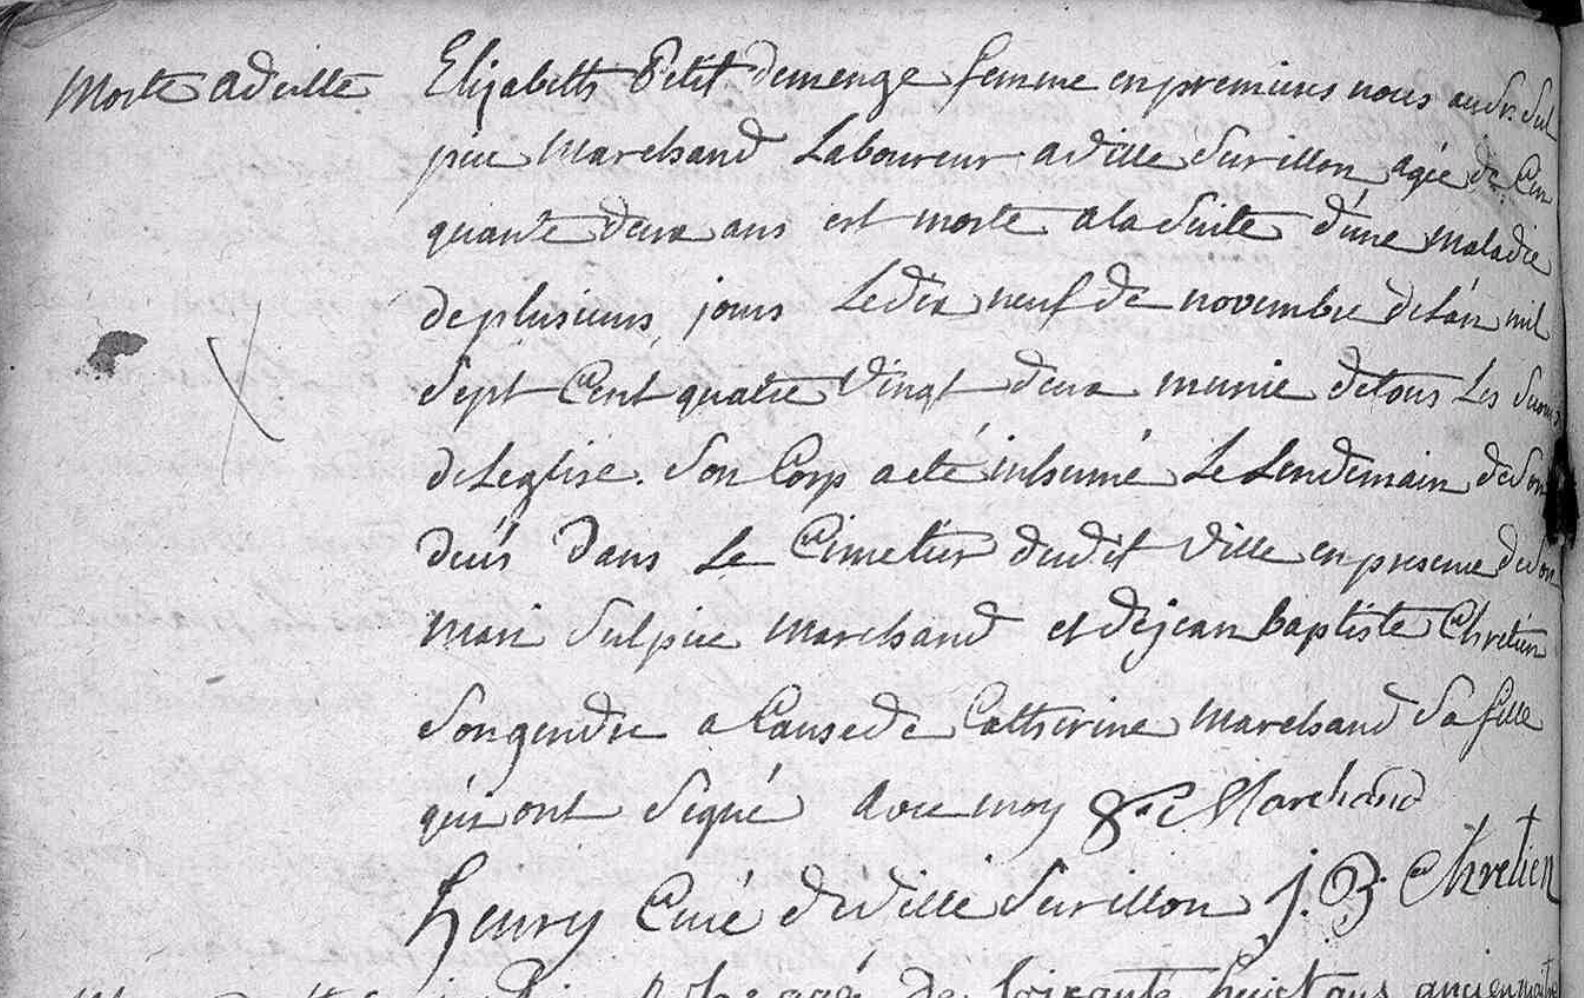 Morte a ville
Elizabeth Petit demenge femme en premieres noces au Sr. Sul
pice Marchand Laboureur a ville Sur illon agée de Cin
quante deux ans est morte a la Suite d'une maladie
de plusieurs jours Le dix neuf de novembre de L'an mil
Sept Cent quatre Vingt deux munie de tous Les Secours
de Leglise. Son Corp a eté inhumé Le Lendemain de Son
decés dans Le Cimetier dudit Ville en presence de Son
mari Sulpice Marchand et de jean baptiste Chretien
Son gendre a Cause de Catherine Marchand Sa fille
qui ont Signé avec moy Marchand
henry Curé de Ville Sur illon J. B. Chretien
agé de soixante huict ans ancien